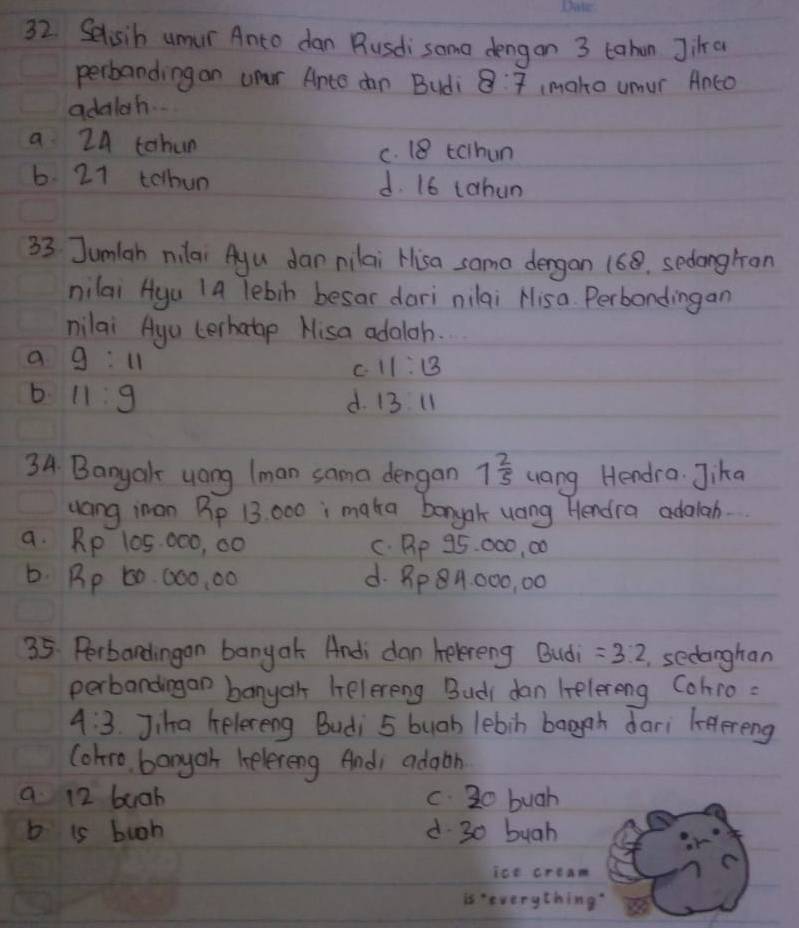 Date
32. Selisih umur Anto dan Rusdi sama dengan 3 tahun Jika
perbandingan umur Anto dan Budi 8:7, maka umur Anto
adalah...
a. 24 tahun
c. 18 tahun
b. 21 tahun
d. 16 tahun
33. Jumlah nilai Ayu dan nilai Nisa sama dengan 168, sedangkan
nilai Ayu 14 lebih besar dari nilai Nisa. Perbandingan
nilai Ayu terhatap Nisa adalah....
a 9 : 11
c. 11 : 13
b. 11 : 9
d. 13 : 11
34. Banyak uang Iman sama dengan 1 2/3 uang Hendra. Jika
uang iman Rp 13.000 ; maka banyak uang Hendra adalah...
a. Rp 105.000,00
c. Rp 95.000,00
b. Rp 60.000,00
d. Rp 84.000,00
35. Perbandingan banyak Andi dan kelereng Budi = 3:2, sedangkan
perbandingan banyak kelereng Budi dan kelereng Cokro =
4:3. Jika kelereng Budi 5 buah lebih banyak dari kelereng
Cokro, banyak kelereng Andi adalah
a. 12 buah
c. 20 buah
b 15 buah
d. 30 buah
ice cream
is "everything"